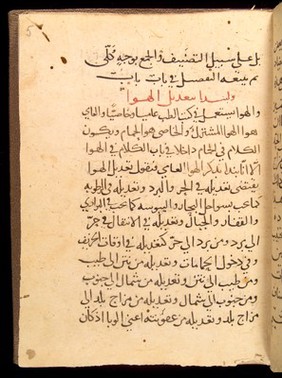 بل على سبيل التصنيف والجمع بوجه كلى
ثم يتبعه التفصيل فى باب باب
ولنبدا بتعديل الهوا
والهوا يستعمل فى كتب الطب عاميا وخاصيا والعامى
هو الهوا المشترك والخاصى هو الحمام ويكون
الكلام فى الحمام داخلا فى باب الكلام فى الهوا
الا انا نبتدئ بذكر الهوا العامى فنقول تعديل الهوا
يقتضى تعديله فى الحر والبرد وتعديله فى الرطوبه
كما يجب بسواحل البحار واليبوسه كما يجب فى البرارى
والقفار والجبال وتعديله فى الانتقال فى حر
الى برد ومن برد الى حر كتعديله فى اوقات الخريف
وفى دخول الحمامات وتعديله من نتن الى طيب
ومن طيب الى نتن وتعديله من شمال الى جنوب
ومن جنوب الى شمال وتعديله من مزاج بلد الى
مزاج بلد وتعديله من عفونته اعنى الوبا اذ كان